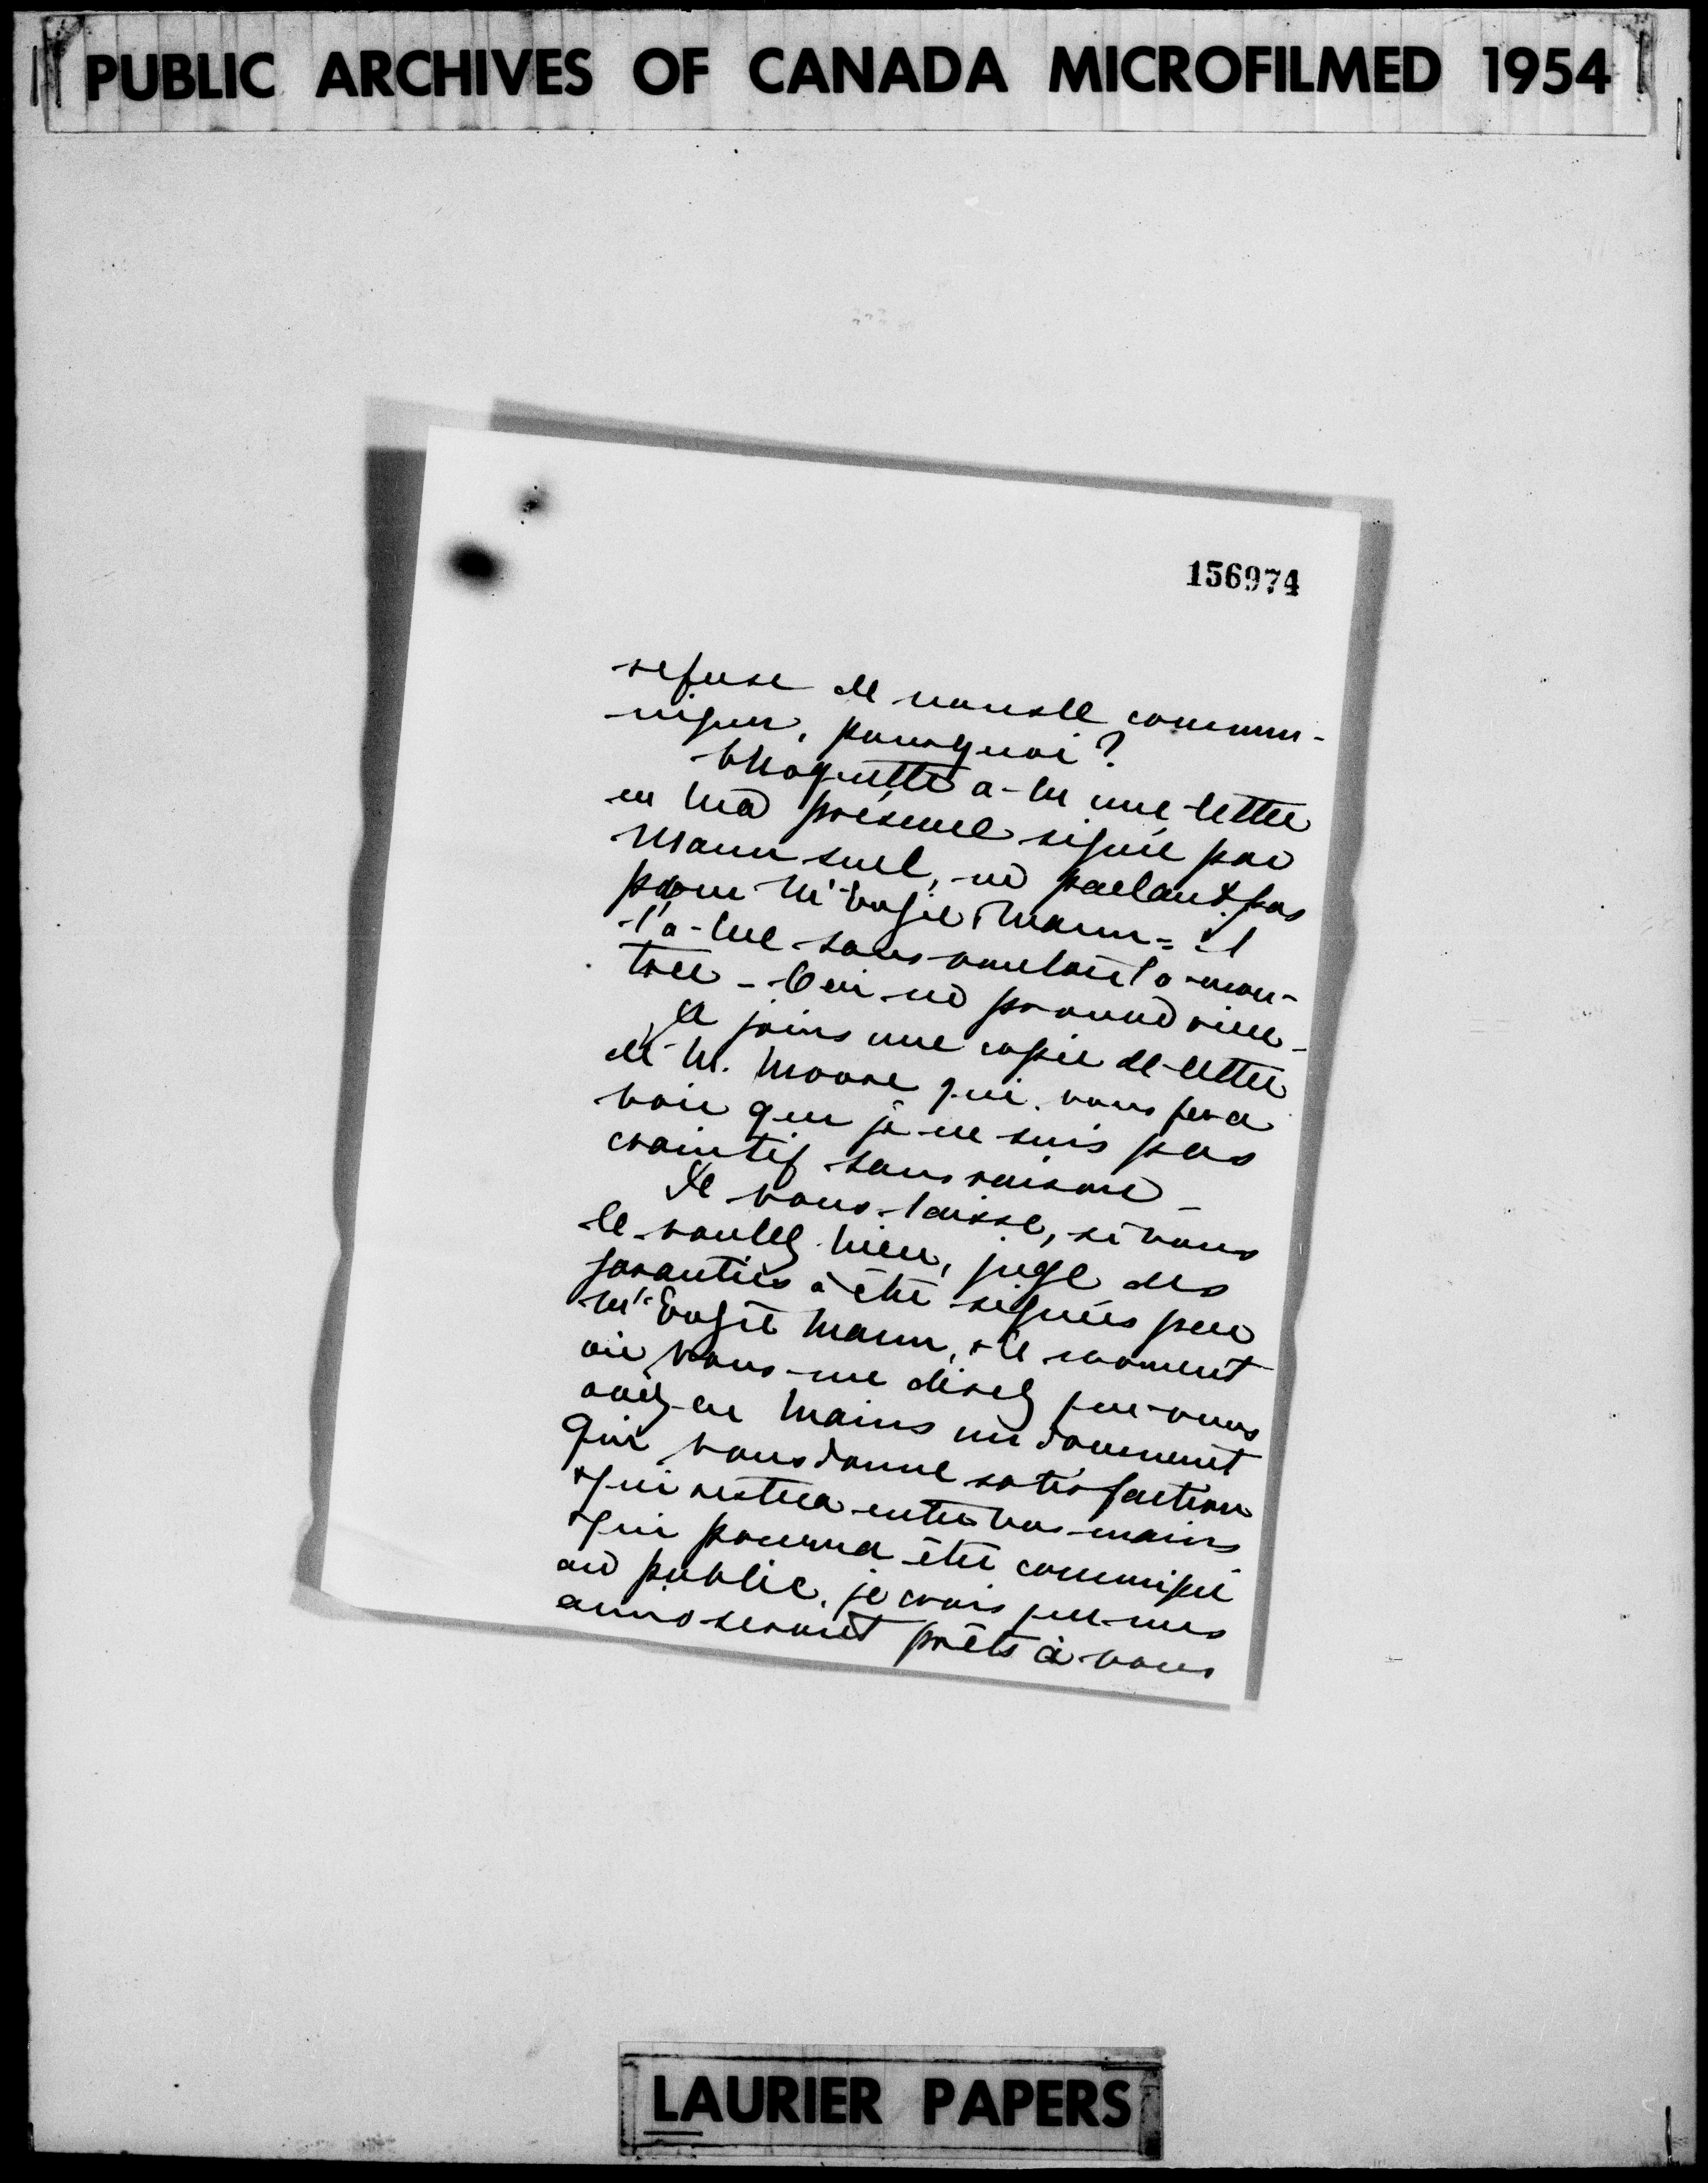 PUBLIC ARCHIVES OF CANADA MICROFILMED 1954
156974
refuse de nous le commu-
niquer, pourquoi?
Choquette a lu une lettre
en ma présence signée par
Mann seul, ne parlant pas
pour McKenzie & Mann = il
l'a lue sans vouloir la mon-
trer - Ceci ne prouve rien -
Je joins une copie de lettre
de M. Moore qui vous fera
voir que je ne suis pas
craintif sans raison -
Je vous laisse, si vous
le voulez bien, juge des
garanties à être signées par
McKenzie Mann, & le moment
où vous me direz que vous
avez en mains un document
qui vous donne satisfaction
& qui restera entre vos mains
& qui pourra être communiqué
au public, je crois que mes
amis seront prêts à vous
LAURIER PAPERS